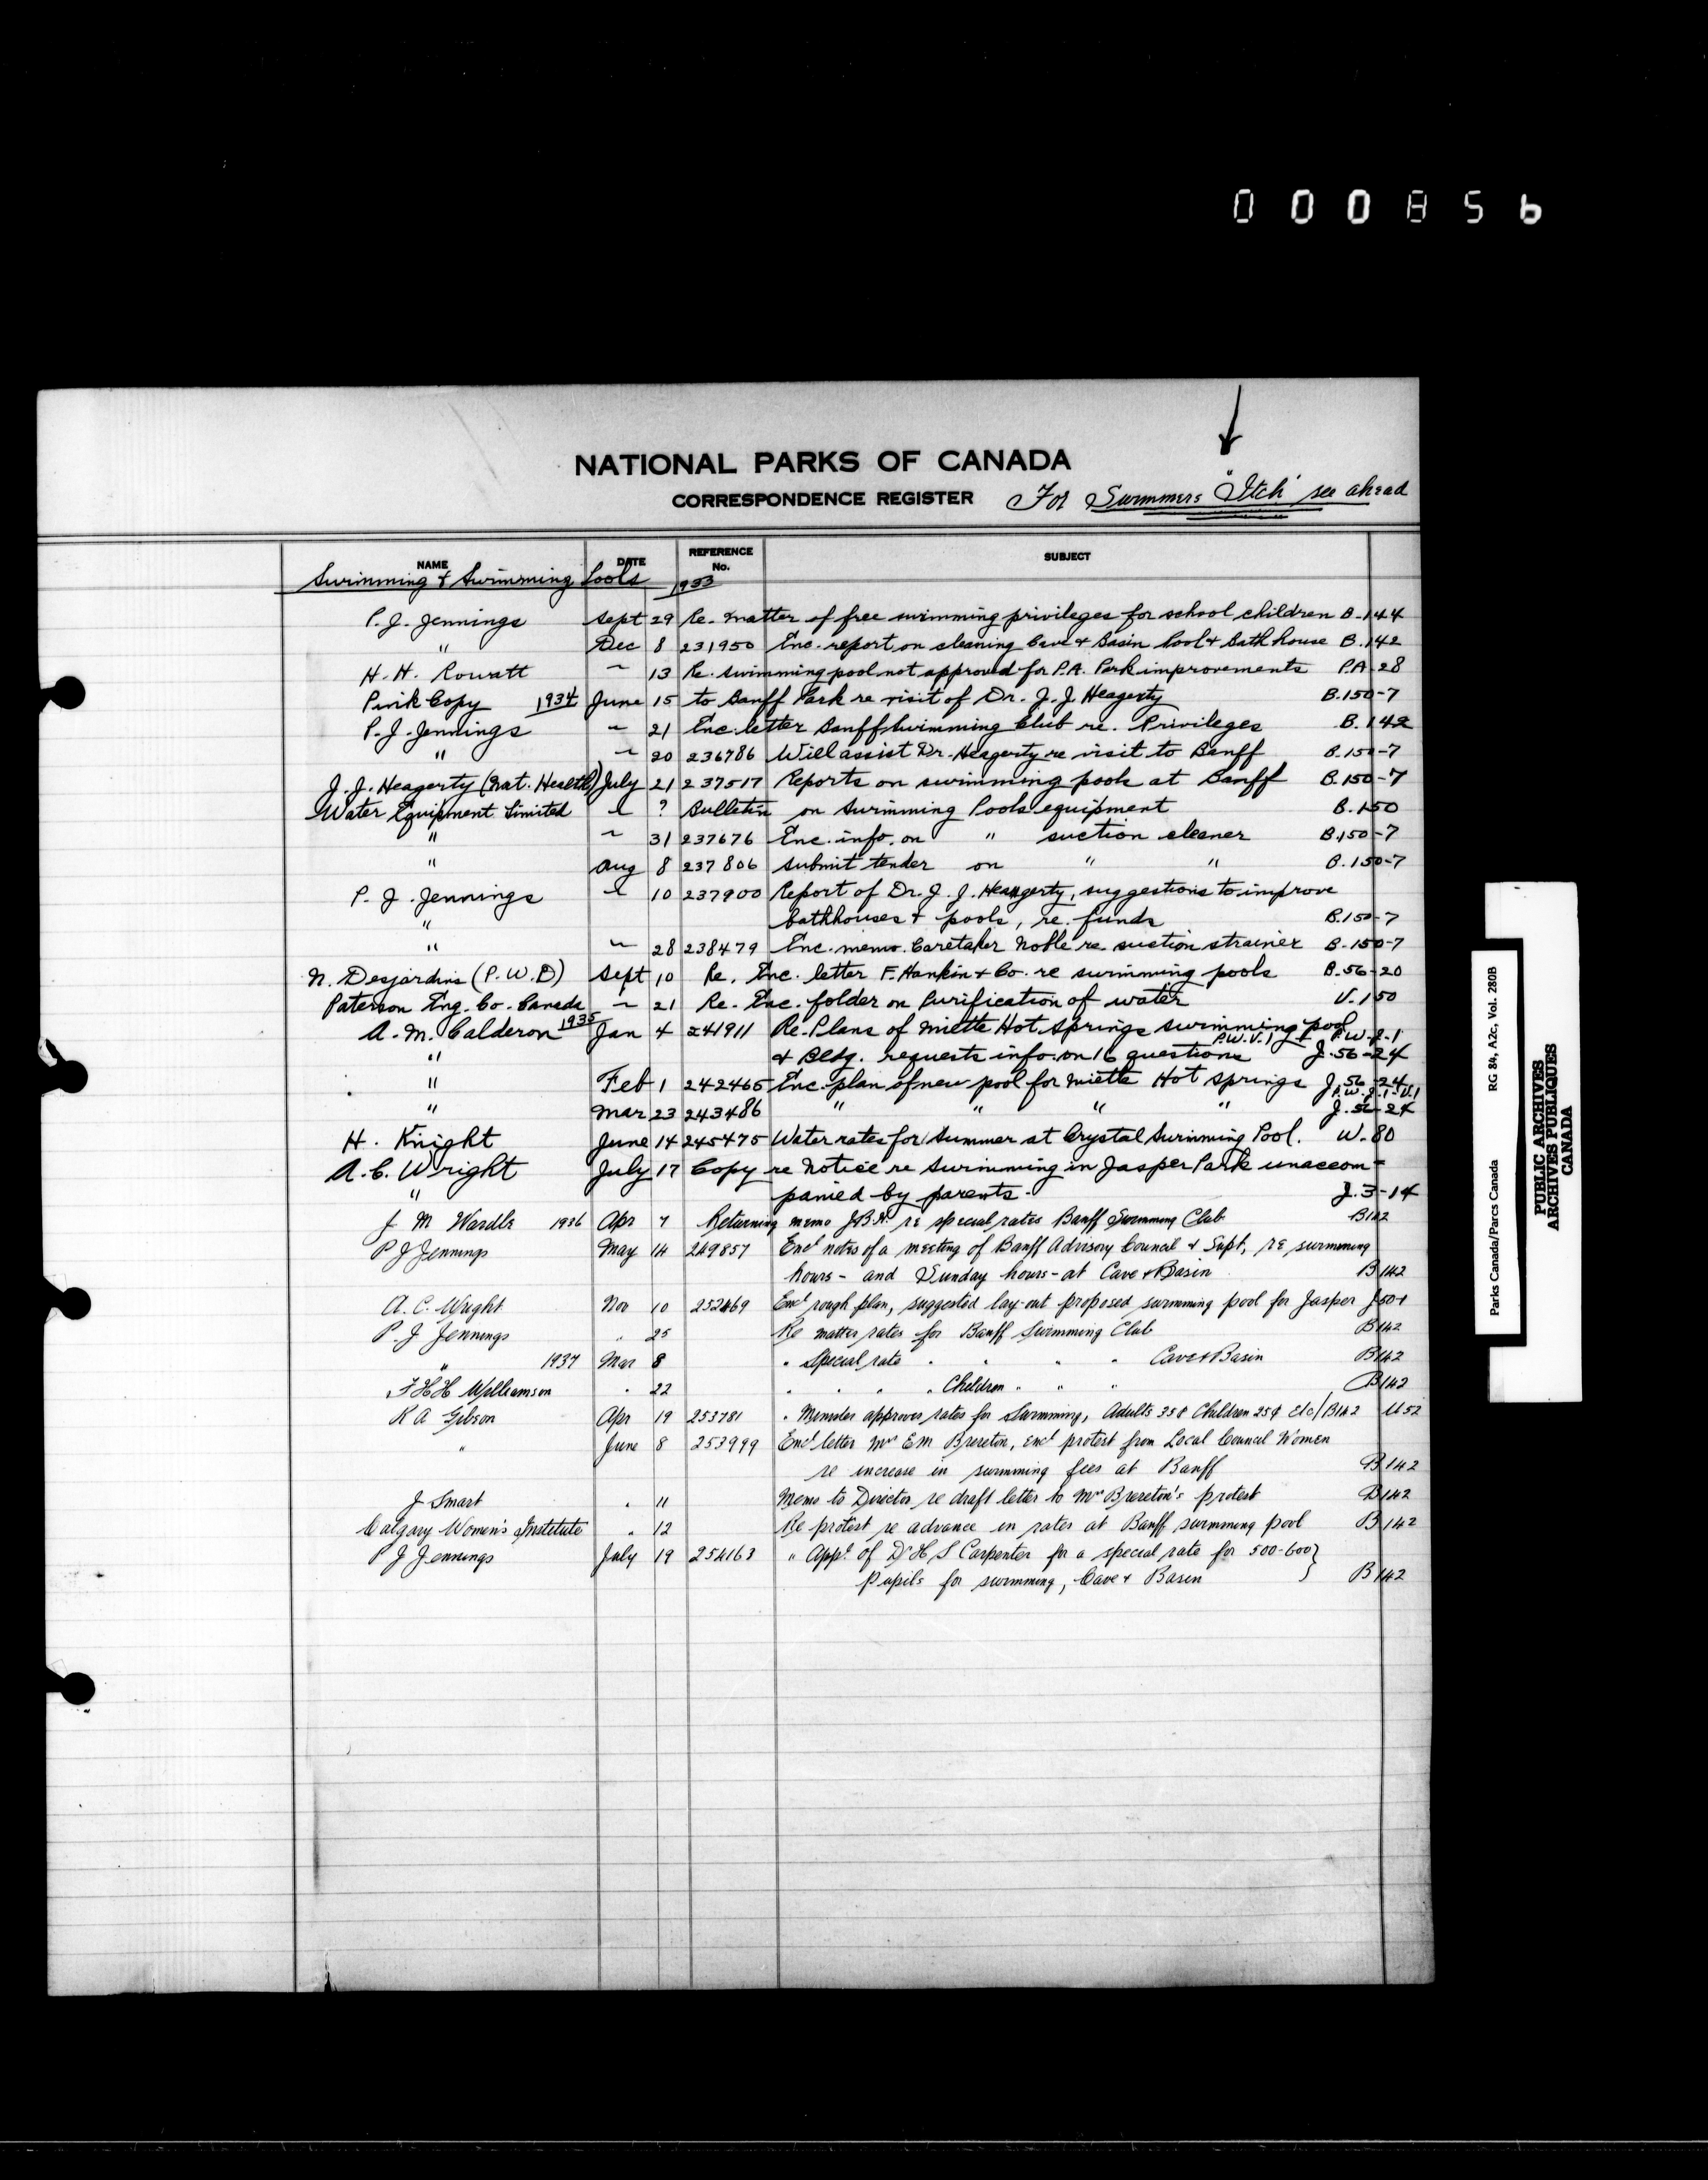 000856
NATIONAL PARKS OF CANADA
CORRESPONDENCE REGISTER For Swimmers "Itch" see ahead
NAME DATE REFERENCE No. SUBJECT
Swimming & Swimming Pools 1933
P. J. Jennings Sept 29 Re. matter of free swimming privileges for school children B-144
" Dec 8 231950 Enc. report on cleaning Cave & Basin Pool & Bath house B.142
H. H. Rowatt ~ 13 Re. swimming pool not approved for P.A. Park improvements P.A-28
Pink Copy 1934 June 15 to Banff Park re visit of Dr. J. J Heagerty B.150-7
P. J. Jennings ~ 21 Enc letter Banff Swimming Club re. Privileges B.142
" ~ 20 236786 Will assist Dr. Heagerty re visit to Banff B.150-7
J. J. Heagerty (Nat. Health) July 21 237517 Reports on swimming pools at Banff B.150-7
Water Equipment Limited ~ ? Bulletin on Swimming Pools equipment B.150
" ~ 31 237676 Enc. info. on " suction cleaner B.150-7
" Aug 8 237806 submit tender on " " B.150-7
P. J. Jennings ~ 10 237900 Report of Dr. J. J. Heagerty, suggestions to improve
" bathhouses & pools, re. funds B.150-7
" ~ 28 238479 Enc. memo. Caretaker Noble re suction strainer B-150-7
N. Desjardins (P.W.D) Sept 10 Re. Enc. letter F. Hankin & Co. re swimming pools B.56-20
Paterson Eng. Co. Canada ~ 21 Re. Enc. folder on Purification of water V.150
A. M. Calderon 1935 Jan 4 241911 Re. Plans of Miette Hot Springs swimming pool P.W.J-1
" & Bldg. requests info. on 16 questions P.W.V.1 J.56-24
" Feb 1 242465 Enc. plan of new pool for Miette Hot Springs J.56-24
" Mar 23 243486 " " " " P.W.J-1-V.1 J.56-24
H. Knight June 14 245475 Water rates for Summer at Crystal Swimming Pool. W-80
A. C. Wright July 17 Copy re Notice re Swimming in Jasper Park unaccom-
" panied by parents. J.3-14
J M Wardle 1936 Apr 7 Returning memo J.B.H. re special rates Banff Swimming Club B142
P J Jennings May 14 249857 Encl notes of a meeting of Banff Advisory Council & Supt, re swimming
hours - and Sunday hours - at Cave & Basin B142
A. C. Wright Nov 10 252469 Encl rough plan, suggested lay-out proposed swimming pool for Jasper J50-1
P. J Jennings " 25 Re matter rates for Banff Swimming Club B142
" 1937 Mar 8 " Special rate " " " " Cave & Basin B142
F H H Williamson " 22 " " " " Children " " " B142
R A Gibson Apr 19 253781 " Minister approves rates for Swimming, Adults 35¢ Children 25¢ etc/B142 U52
" June 8 253999 Encl letter Mrs E M Brereton, encl protest from Local Council Women
re increase in swimming fees at Banff B142
J Smart " 11 Memo to Director re draft letter to Mrs Brereton's protest B142
Calgary Women's Institute " 12 Re protest re advance in rates at Banff swimming pool B142
P J Jennings July 19 254163 " Appl of Dr H S Carpenter for a special rate for 500-600 }
pupils for swimming, Cave & Basin } B142
Parks Canada/Parcs Canada RG 84, A2c, Vol. 280B
PUBLIC ARCHIVES
ARCHIVES PUBLIQUES
CANADA